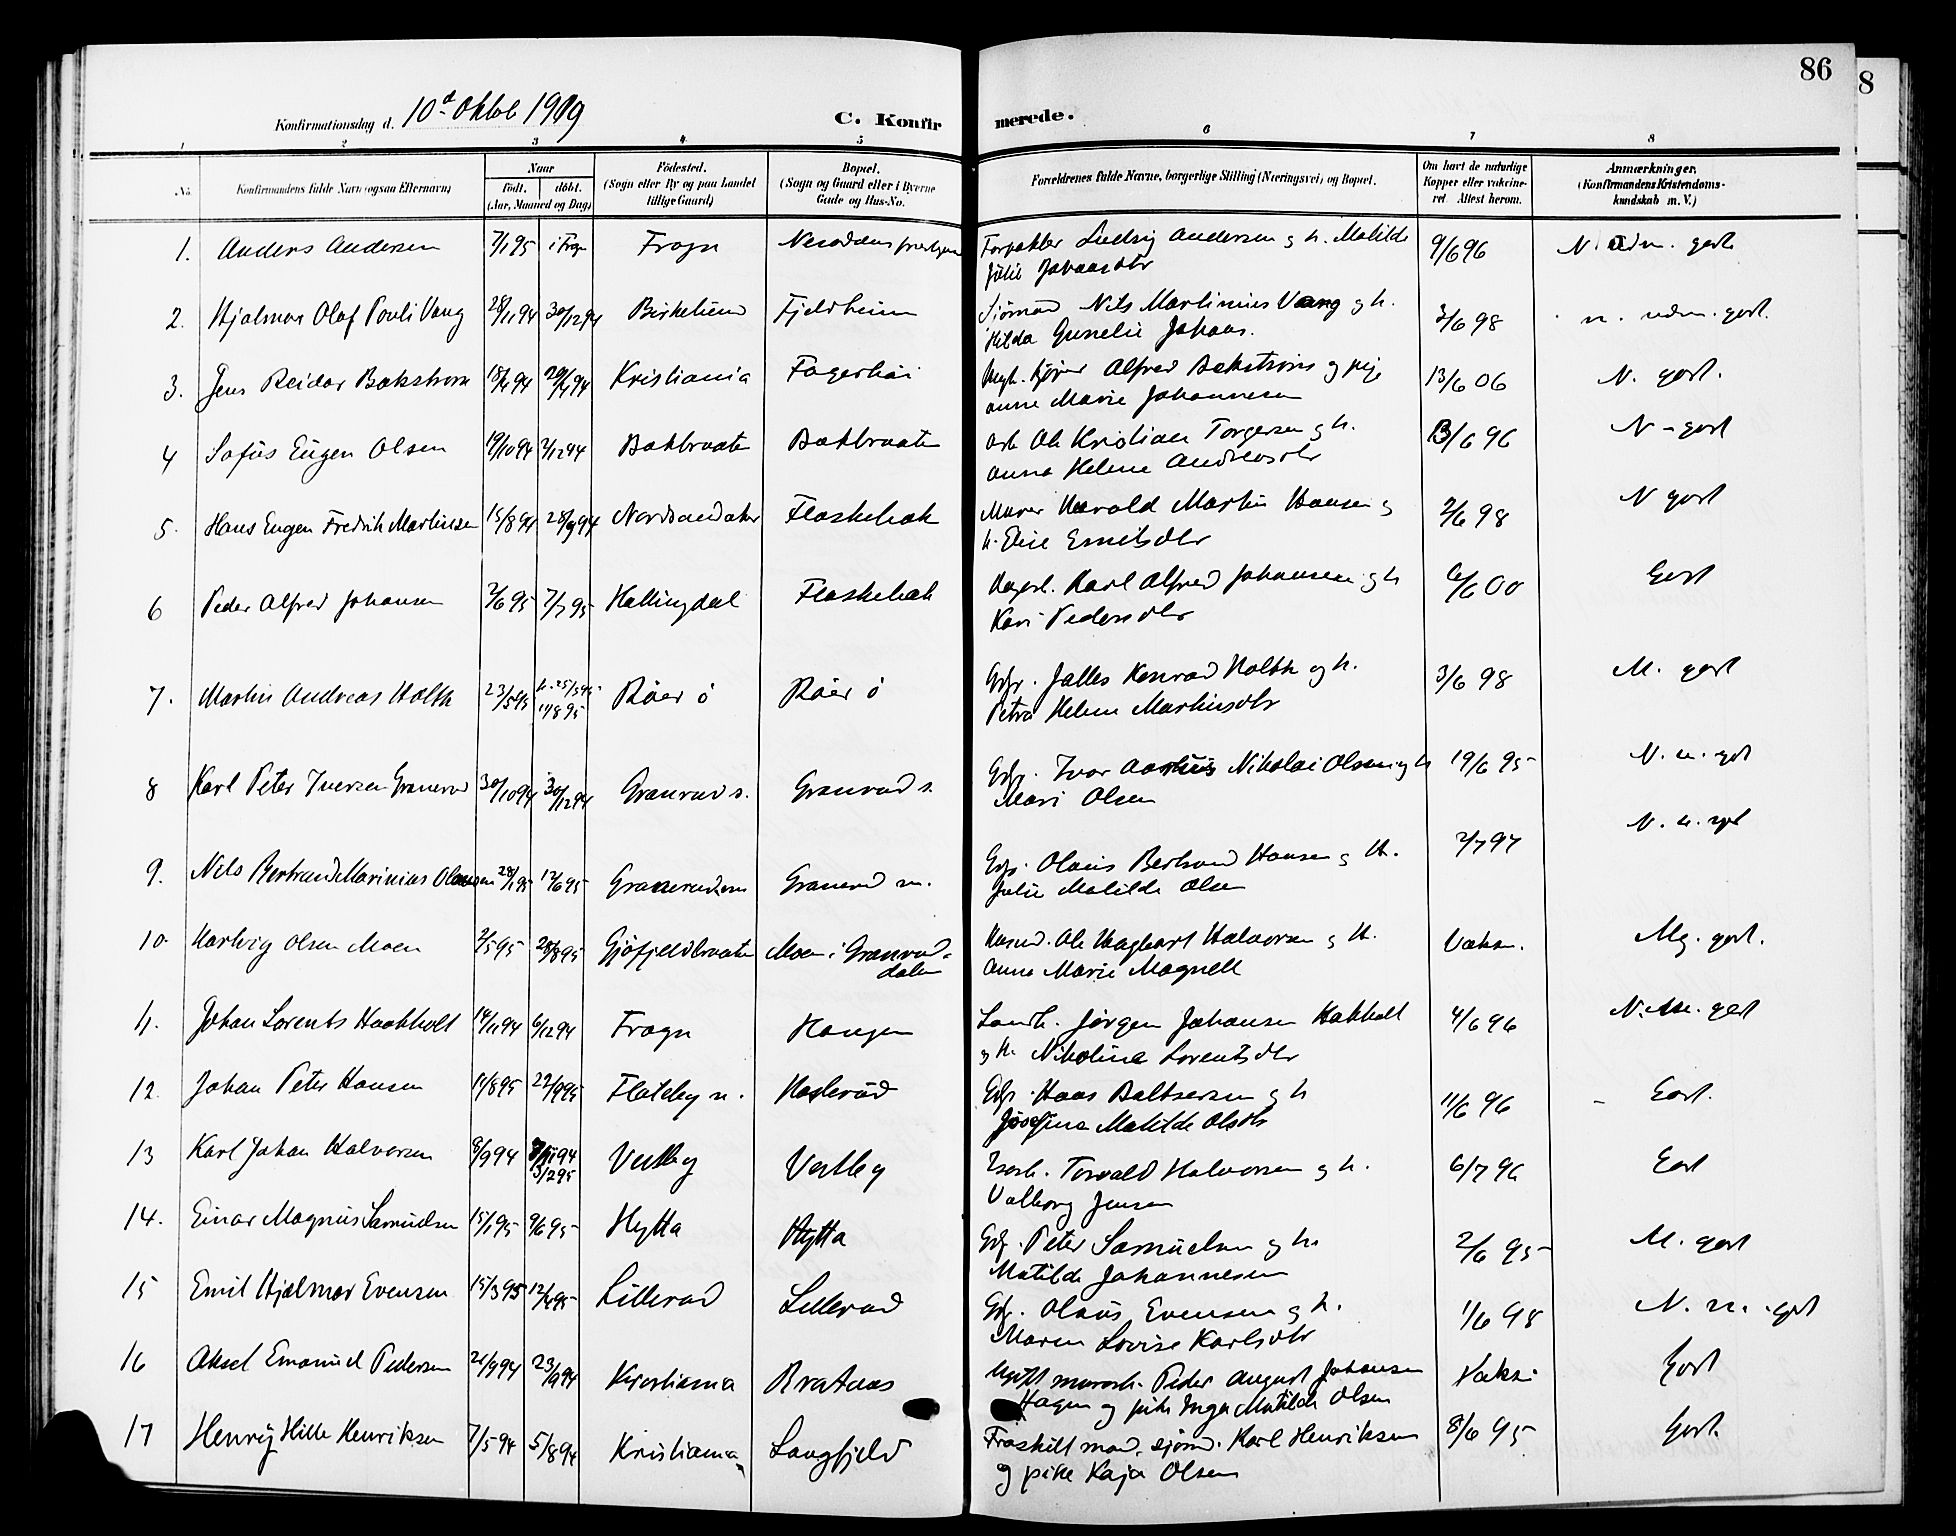 86
8
Konfirmationsdag d. 10d Oktbe 1909
C. Konfirmerede.
1 2 3 4 5 6 7 8
No. Konfirmandens fulde Navn (ogsaa Efternavn) Naar født. døbt. (Aar, Maaned og Dag) Fødested. (Sogn eller By og paa Landet tillige Gaard) Bopæl. (Sogn og Gaard eller i Byerne Gade og Hus-No. Forældrenes fulde Navne, borgerlige Stilling (Næringsvei) og Bopæl. Om havt de naturlige Kopper eller vaccineret. Attest herom. Anmærkninger. (Konfirmandens Kristendomskundskab m. V.)
1. Anders Andersen 7/1 95 i Frogn Frogn Ludvig Andersen og h. Matilde 9/6 96
Julie
2. Hjalmar Olaf Povli Vang 28/11 94 30/12 94 Birkelund Fjeldheim Nils Martinius Vang og h. 3/6 98 n. udm. godt.
Hilda Gunelie Johans.
3. Jens Reidar Bækstrøm 18/4 94 29/4 94 Kristiania Fagerhøi Alfred Bekstrøm og pige 13/6 06 N. godt.
Anne Marie Johannesen
4 Sofus Eugen Olsen 19/10 94 2/12 94 Bakbraaten Bakbraaten arb. Ole Kristian Torgersen og h. 13/6 96 N - godt
Anna Helene Andreasdtr
5. Hans Eugen Fredrik Martinsen 15/8 94 28/9 94 Nordsandaker Flaskebæk Murer Harald Martin Hansen og 2/6 98 N godt
h. Elise Emilsdtr
6 Peder Alfred Johansen 3/6 95 7/7 95 Hallingdal Flaskebæk Karl Alfred Johansen og h 6/6 00 Godt
Kari Pedersdtr
7. Martin Andreas Holth 23/5 95 h. 25/5 95 11/8 95 Røer ø Røer ø Gbr. Jalles Konrad Holth og h. 3/6 98 M. godt
Petra Helene Martinsdtr
8 Karl Peter Iversen Granerud 30/10 94 30/12 94 Granrud s. Granrud s. Gbr. Ivar Nikolai Olsen og h 19/6 95 N. n. godt
Mari Olsen
9. Nils Bertrand Marinius Olaussen 28/1 95 12/6 95 Granerud Granerud m. Gbr. Olaus Bertrand Hansen og H. 2/7 97
Julie Matilde Olsen
10. Hartvig Olsen Moen 2/5 95 28/8 95 Gjøfjeldbraaten Moen i Granruddalen Husmd. Ole Hagbart Halvorsen og H. Vaksn. Mg. godt.
Anna Marie Magnell
11. Johan Lorents Haakholt 14/11 94 6/12 94 Frogn Haugen Landh. Jørgen Johansen Hakholt 4/6 96
og h. Nikoline Lorentsdtr
12. Johan Peter Hansen 11/8 95 22/9 95 Flateby n. Haslerud Gbr. Hans Baltsersen og h 11/6 96 Godt.
Josefine Matilde Olsdtr
13 Karl Johan Halvorsen 9/9 94 3/2 95 Vestby Vestby Torvald Halvorsen og h. 6/7 96 Godt
Valborg Jensen
14. Einar Magnus Samuelsen 15/1 95 9/6 95 Hytta Hytta Gbr. Peter Samuelsen og h. 2/6 95 M. godt
Matilde Johannesen
15 Emil Hjalmar Evensen 15/3 95 12/4 95 Lillerud Lillerud Gbr. Olaus Evensen og h. 1/6 98 N. n. godt
Maren Lovise Karlsdtr
16 Aksel Emanuel Pedersen 21/9 94 23/9 94 Kristiania Brataas Ugift murarb. Peder August Johansen Vaks. Godt
Hagen og pike Inga Matilde Olsen
17 Henry Hille Henriksen 7/5 94 5/8 94 Kristiania Langfjeld Fraskilt mand, sjømd. Karl Henriksen 8/6 95 Godt.
og pike Kaja Olsen